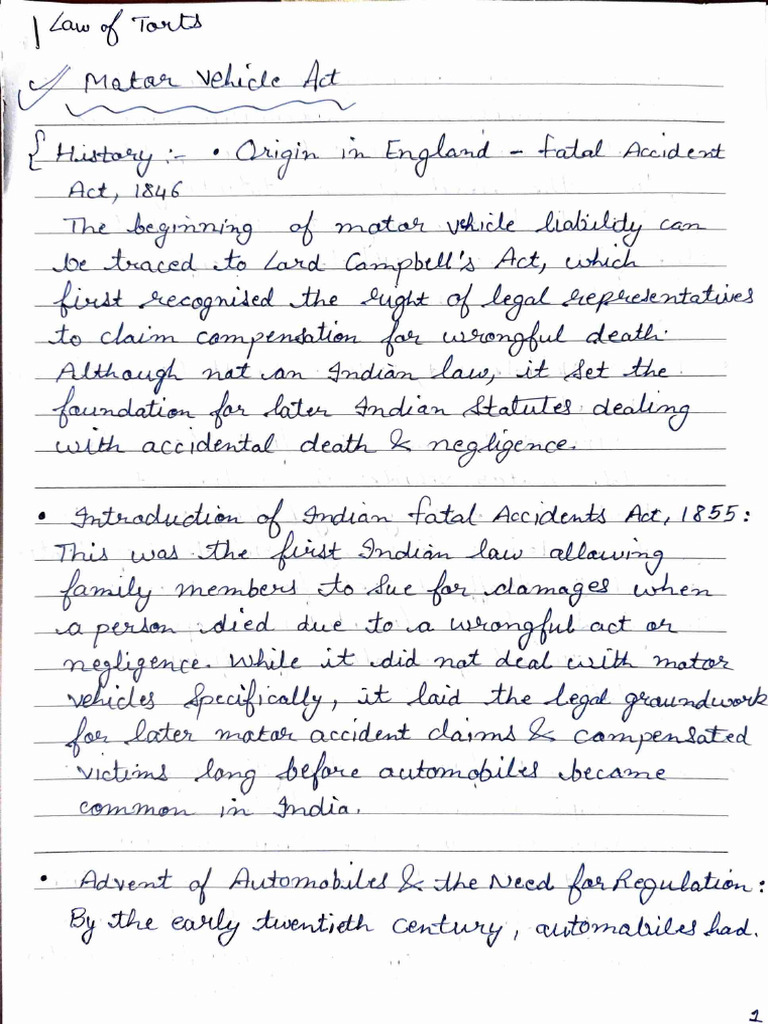 Law of Torts
Motor Vehicle Act
History :- • Origin in England - Fatal Accident
Act, 1846
The beginning of motor vehicle liability can
be traced to Lord Campbell's Act, which
first recognised the right of legal representatives
to claim compensation for wrongful death.
Although not an Indian law, it set the
foundation for later Indian Statutes dealing
with accidental death & negligence.
• Introduction of Indian Fatal Accidents Act, 1855:
This was the first Indian law allowing
family members to sue for damages when
a person died due to a wrongful act or
negligence. While it did not deal with motor
vehicles specifically, it laid the legal groundwork
for later motor accident claims & compensated
victims long before automobiles became
common in India.
• Advent of Automobiles & the Need for Regulation:
By the early twentieth century, automobiles had.
1